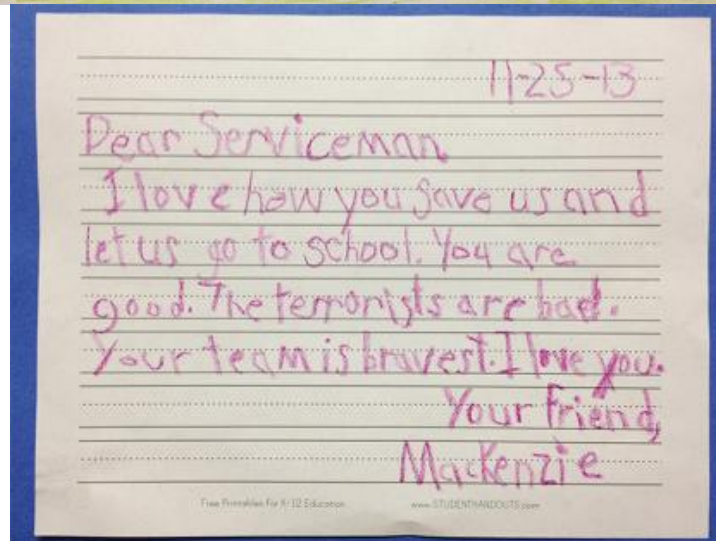 11-25-13
Dear Serviceman
I love how you save us and
let us go to school. You are
good. The terrorists are bad.
Your team is bravest. I love you.
Your friend,
Mackenzie
Free Printables for K-12 Education www.STUDENTHANDOUTS.com